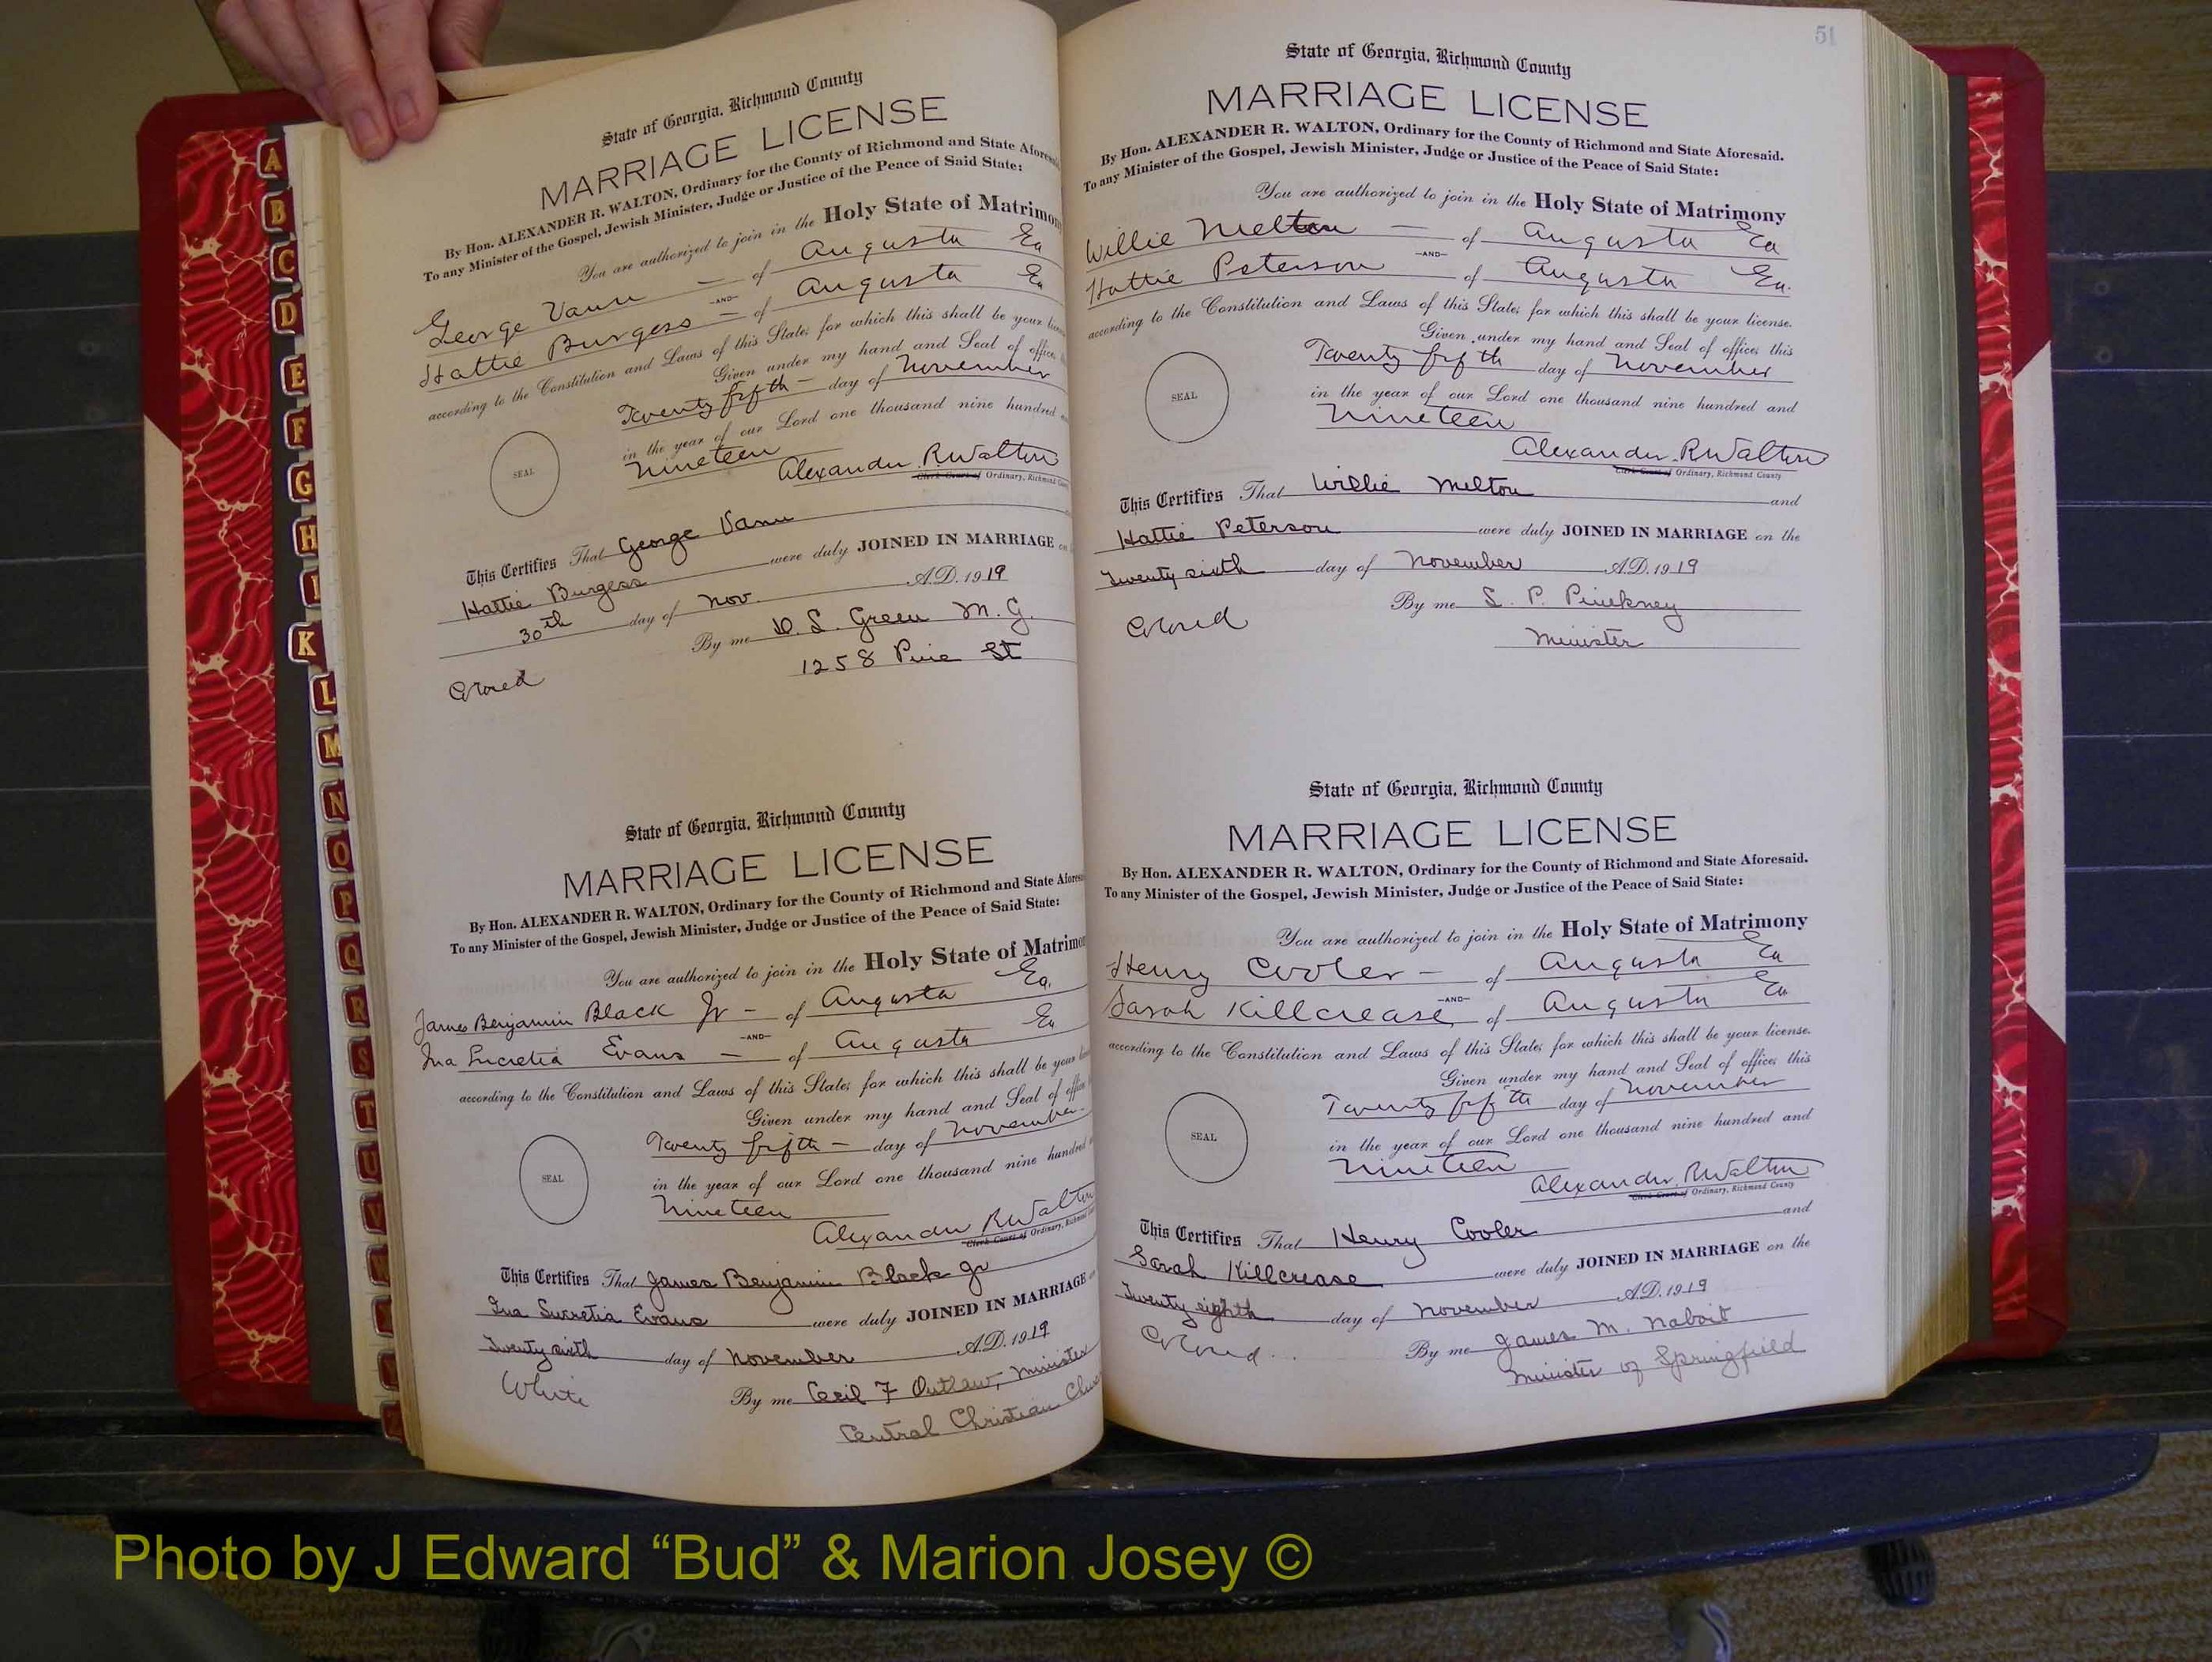 State of Georgia, Richmond County
MARRIAGE LICENSE
By Hon. ALEXANDER R. WALTON, Ordinary for the County of Richmond and State Afores
To any Minister of the Gospel, Jewish Minister, Judge or Justice of the Peace of Said State:
You are authorized to join in the Holy State of Matrimony
George Vann — of Augusta Ga
—AND—
Hattie Burgess — of Augusta Ga
according to the Constitution and Laws of this State; for which this shall be your
Given under my hand and Seal of office,
Twenty fifth — day of November
in the year of our Lord one thousand nine hundred
SEAL
nineteen
Alexander R Walton
Clerk Court of Ordinary, Richmond
This Certifies That George Vann
Hattie Burgess were duly JOINED IN MARRIAGE on
30th day of Nov. A.D. 1919
By me D. S. Green M. G.
1258 Pine St
Colored
State of Georgia, Richmond County
MARRIAGE LICENSE
By Hon. ALEXANDER R. WALTON, Ordinary for the County of Richmond and State Afores
To any Minister of the Gospel, Jewish Minister, Judge or Justice of the Peace of Said State:
You are authorized to join in the Holy State of Matrimo
James Benjamin Black Jr — of Augusta Ga.
—AND—
Ina Lucretia Evans — of Augusta Ga
according to the Constitution and Laws of this State; for which this shall be your
Given under my hand and Seal of office
Twenty fifth — day of November
in the year of our Lord one thousand nine hundred
SEAL
nineteen
Alexander R Walton
Clerk Court of Ordinary, Richmond
This Certifies That James Benjamin Black Jr
Ina Lucretia Evans were duly JOINED IN MARRIAGE
Twenty sixth day of November A.D. 1919
By me Cecil F Outlaw, Minister
Central Christian
White
51
State of Georgia, Richmond County
MARRIAGE LICENSE
By Hon. ALEXANDER R. WALTON, Ordinary for the County of Richmond and State Aforesaid.
To any Minister of the Gospel, Jewish Minister, Judge or Justice of the Peace of Said State:
You are authorized to join in the Holy State of Matrimony
Willie Melton — of Augusta Ga
—AND—
Hattie Peterson of Augusta Ga.
according to the Constitution and Laws of this State; for which this shall be your license.
Given under my hand and Seal of office; this
Twenty fifth day of November
in the year of our Lord one thousand nine hundred and
SEAL
nineteen
Alexander R Walton
Clerk Court of Ordinary, Richmond County
This Certifies That Willie Melton and
Hattie Peterson were duly JOINED IN MARRIAGE on the
Twenty sixth day of November A.D. 1919
By me S. P. Pinckney
Minister
Colored
State of Georgia, Richmond County
MARRIAGE LICENSE
By Hon. ALEXANDER R. WALTON, Ordinary for the County of Richmond and State Aforesaid.
To any Minister of the Gospel, Jewish Minister, Judge or Justice of the Peace of Said State:
You are authorized to join in the Holy State of Matrimony
Henry Cooler — of Augusta Ga
—AND—
Sarah Killcrease of Augusta Ga
according to the Constitution and Laws of this State; for which this shall be your license.
Given under my hand and Seal of office; this
Twenty fifth day of November
in the year of our Lord one thousand nine hundred and
SEAL
nineteen
Alexander R Walton
Clerk Court of Ordinary, Richmond County
This Certifies That Henry Cooler and
Sarah Killcrease were duly JOINED IN MARRIAGE on the
Twenty eighth day of November A.D. 1919
By me James M. Naboit
Minister of Springfield
Colored
A
B
C
D
E
F
G
H
I
K
L
M
N
O
P
Q
R
S
T
U
V
W
Photo by J Edward “Bud” & Marion Josey ©